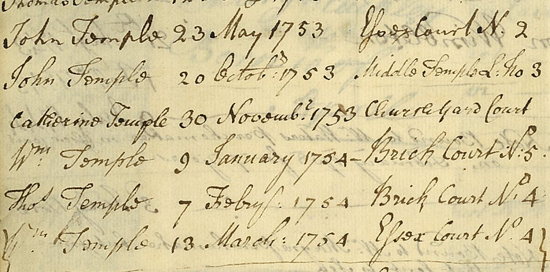 Thomas Temple
John Temple 23 May 1753 Essex Court No. 2
John Temple 20 Octobr. 1753 Middle Temple L: No 3
Catherine Temple 30 Novembr. 1753 Church Yard Court
Wm Temple 9 January 1754 - Brick Court No. 5.
Thos Temple 7 Febry. 1754 Brick Court No. 4
Wm Temple 13 March: 1754 Essex Court No. 4